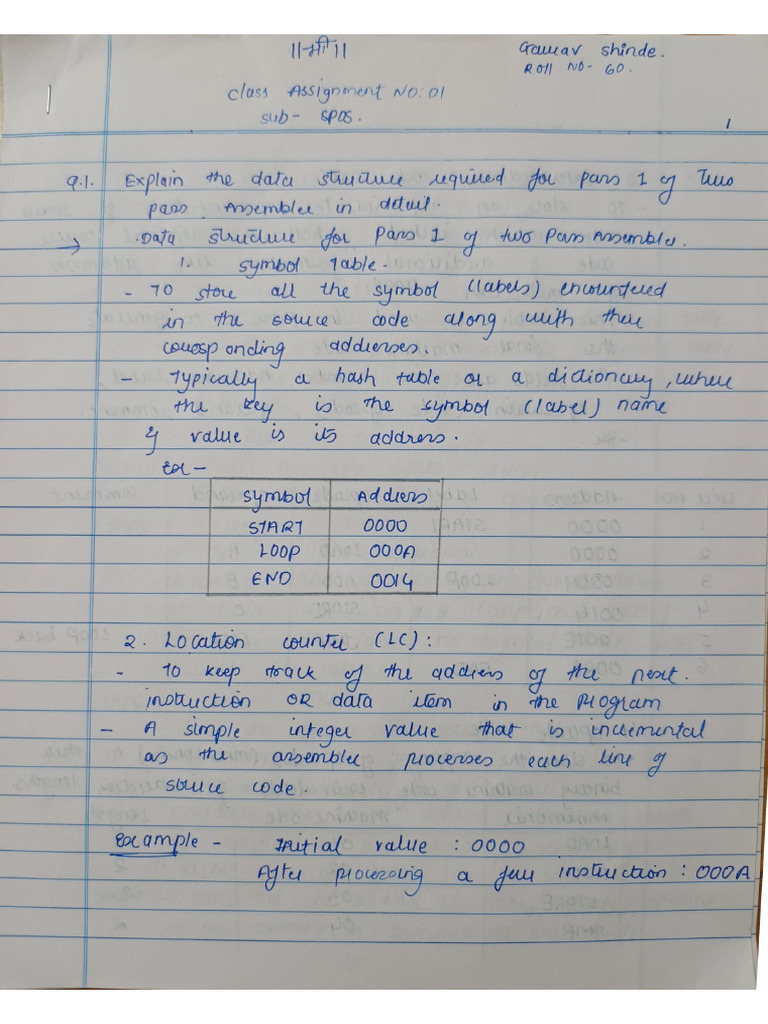 ॥श्री॥
Gaurav Shinde.
Roll NO- 60.
Class Assignment NO: 01
Sub- SPOS.
1
Q.1. Explain the data structure required for pass 1 of Two
pass Assembler in detail.
→ Data structure for Pass 1 of two Pass Assembler.
1. Symbol Table.
- To store all the symbol (labels) encountered
in the source code along with their
corresponding addresses.
- Typically a hash table or a dictionary, where
the key is the symbol (label) name
& value is its address.
Ex -
Symbol Address
START 0000
LOOP 000A
END 0014
2. Location counter (LC) :
- To keep track of the address of the next.
instruction OR data item in the Program
- A simple integer value that is incremental
as the assembler processes each line of
source code.
Example - Initial value : 0000
After processing a few instruction : 000A